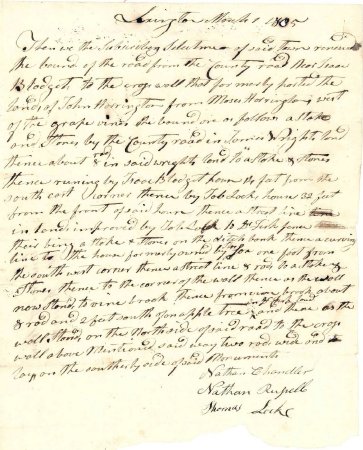 Lexington March 1 1805
Then we the Subscribers Selectmen of said town renewed
the bound of the road from the County road near Isaac
Blodget to the cross wall that formerly parted the
land of John Harrington from Moses Harrington, west
of the grape vines the bounds are as follows a stake
and stones by the County road in Wright land
thence about 8 rod in said wrights land to a stake & stones
thence runing by Isaac Blodget house 14 feet from the
south east Corner thence by Job Locks house 32 feet
from the front of said house thence a strat line
in land improved by Job Lock to Dr fence
their being a stake & stones on the ditch bank thence a curving
line to the house formerly owned by one foot from
the south west corner thence a strat line 4 rods to a stake &
stones thence to the corner of the wall thence as the wall
now stands to vine brook thence from vine brook about
8 rod and 2 feet south of an apple tree and thence as the
wall stands on the North side of said road to the cross
wall above mentioned said way two rod wide and to
lay on the southerly side of said Monuments
Nathan Chandler
Nathan Russell
Thomas Locke